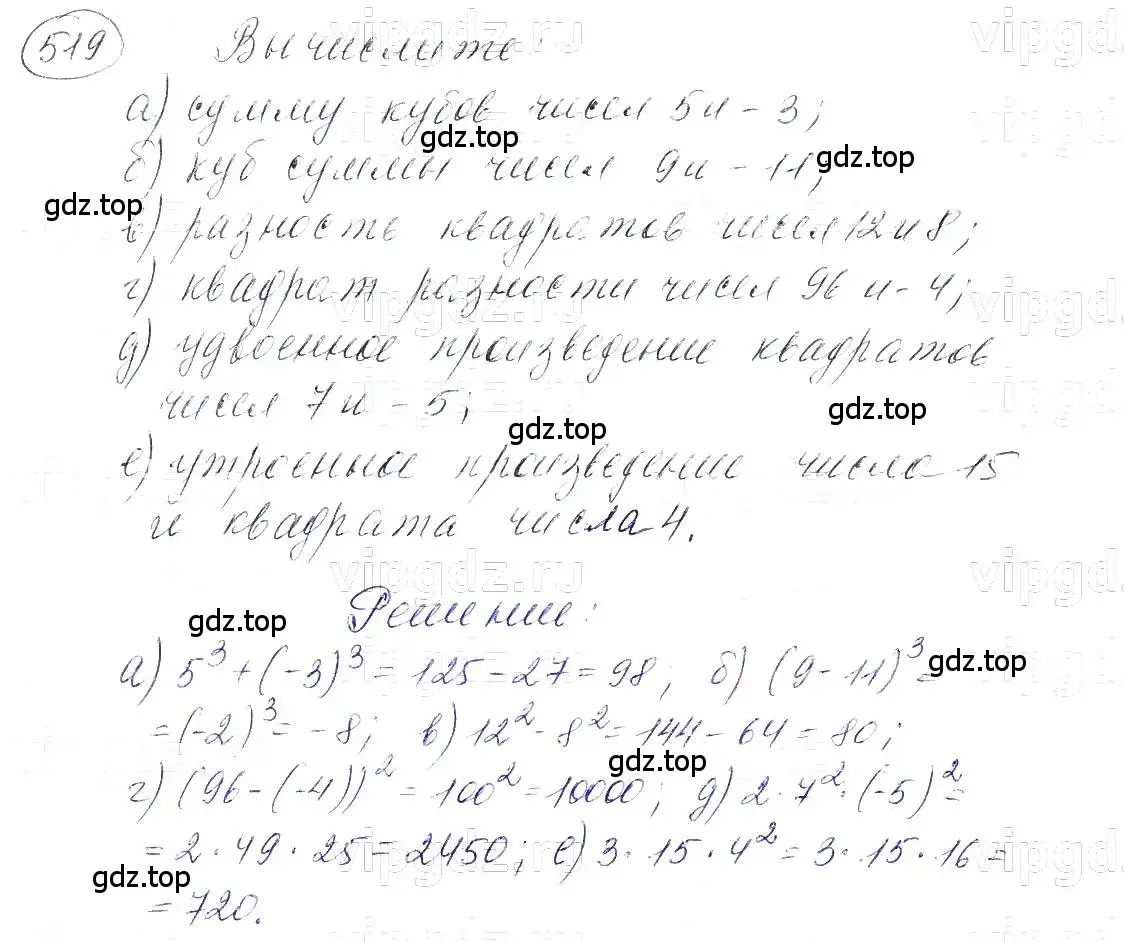 519 Вычислите
а) сумму кубов чисел 5 и -3;
б) куб суммы чисел 9 и -11;
в) разность квадратов чисел 12 и 8;
г) квадрат разности чисел 96 и -4;
д) удвоенное произведение квадратов
чисел 7 и -5;
е) утроенное произведение числа 15
и квадрата числа 4.
Решение:
а) 5³+(-3)³=125-27=98; б) (9-11)³=
=(-2)³=-8; в) 12²-8²=144-64=80;
г) (96-(-4))²=100²=10000; д) 2·7²·(-5)²=
=2·49·25=2450; е) 3·15·4²=3·15·16=
=720.
vipgdz.ru
vipgd
gdz.top
gdz.top
gdz.top
vipgdz.ru
vipgd
vipgdz.ru
vipgd
gdz.top
gdz.top
vipgdz.ru
vipgd
gdz.top
gdz.top
gdz.top
vipgdz.ru
vipgd
gdz.top